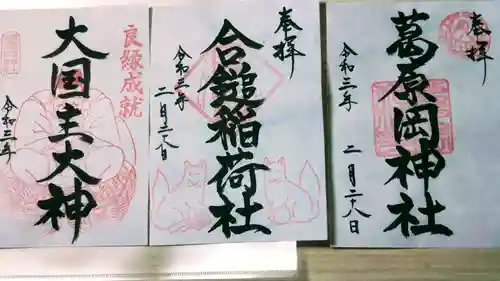 奉拝
葛原岡神社
令和三年 二月二十八日
奉拝
合鎚稲荷社
令和三年
二月二十八日
良縁成就
大国主大神
令和三年